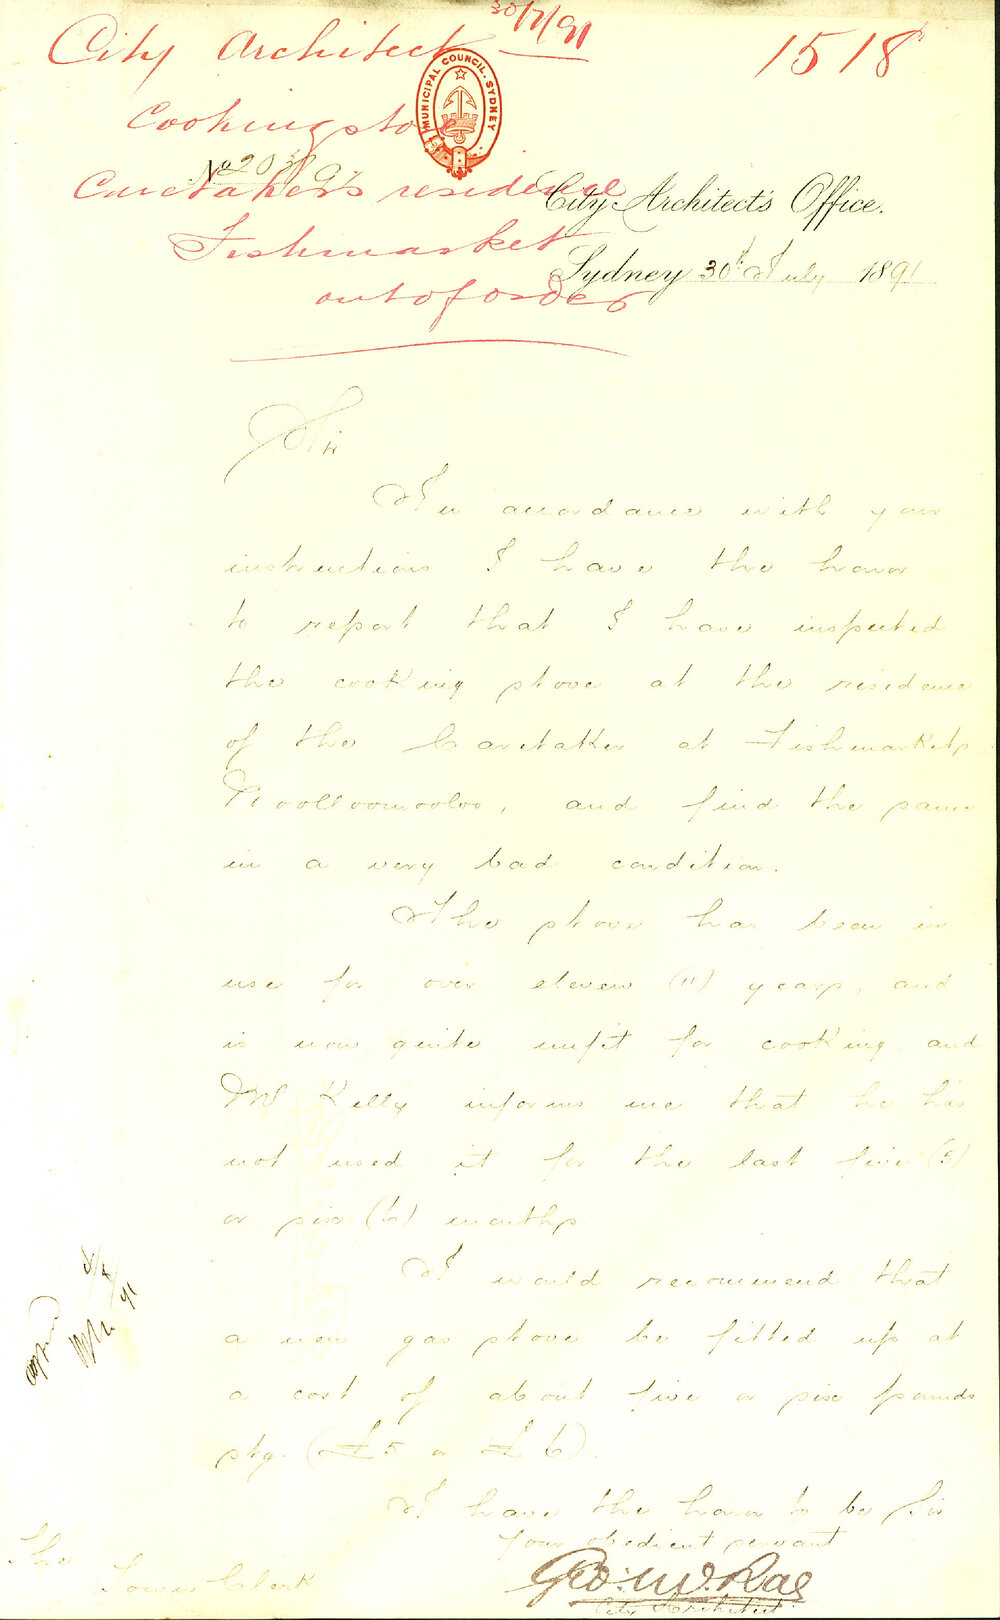 30/7/91
City Architect
1518
MUNICIPAL COUNCIL. SYDNEY
Cooking stove
No 2030 91
Caretakers residence
City Architect's Office.
Fishmarket
Sydney 30th July 1891
out of order
Sir
In accordance with your
instructions I have the honor
to report that I have inspected
the cooking stove at the residence
of the Caretaker at Fishmarkets
Woolloomooloo, and find the same
in a very bad condition.
The stove has been in
use for over eleven (11) years, and
is now quite unfit for cooking, and
Mr Kelly informs me that he has
not used it for the last five (5)
or six (6) months.
I would recommend that
a new gas stove be fitted up at
a cost of about five or six pounds
stg. (£5 or £6).
I have the honor to be Sir
Your obedient servant
Geo: W. Rae
City Architect
The
Town Clerk
4/8/91